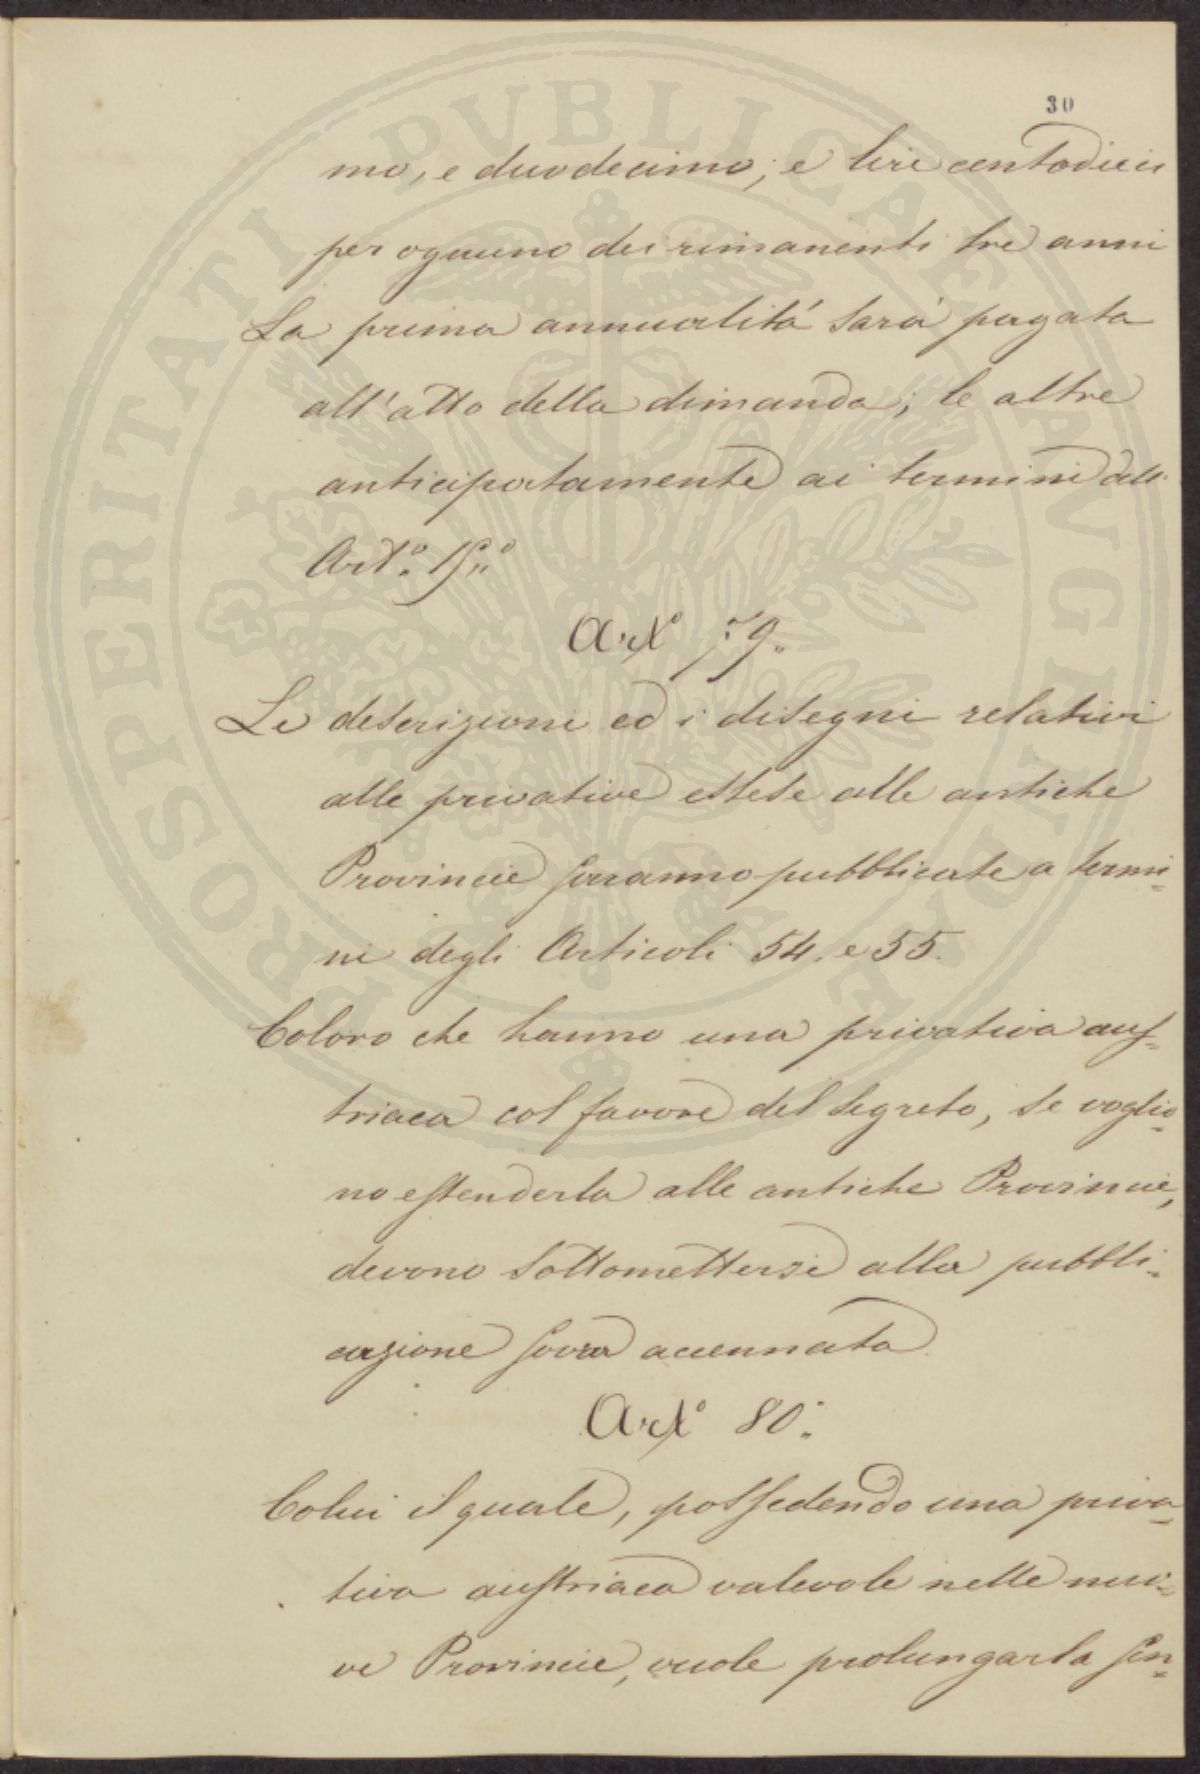 30
mo, e duodecimo; e lire centodieci
per ognuno dei rimanenti tre anni
La prima annualità sarà pagata
all'atto della dimanda; le altre
anticipatamente ai termini dell'
Art.°
Art° 79.
Le descrizioni ed i disegni relativi
alle privative estese alle antiche
Provincie saranno pubblicate a termi=
ni degli Articoli 54. e 55.
Coloro che hanno una privativa aus=
triaca col favore del segreto, se voglio=
no estenderla alle antiche Provincie,
devono sottomettersi alla pubbli=
cazione sovra accennata.
Art° 80.
Colui il quale, possedendo una priva=
tiva austriaca valevole nelle nuo=
ve Provincie, vuole prolungarla sin=
PROSPERITATI PVBLICAE AVGENDAE